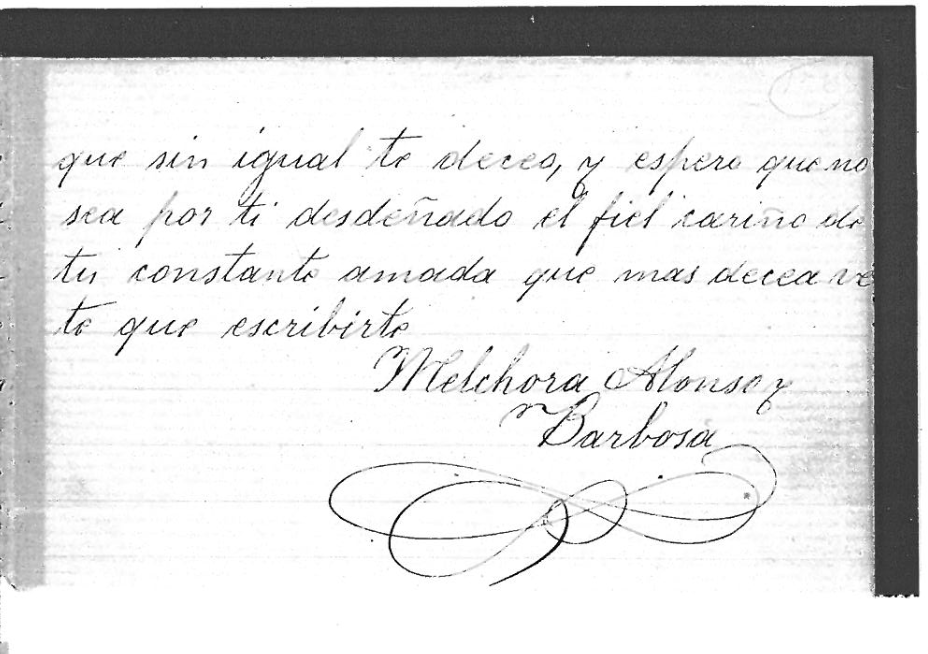 que sin igual te deceo, y espero que no
sea por ti desdeñado el fiel cariño de
tu constante amada que mas decea ve
te que escribirte
Melchora Alonso y
Barbosa